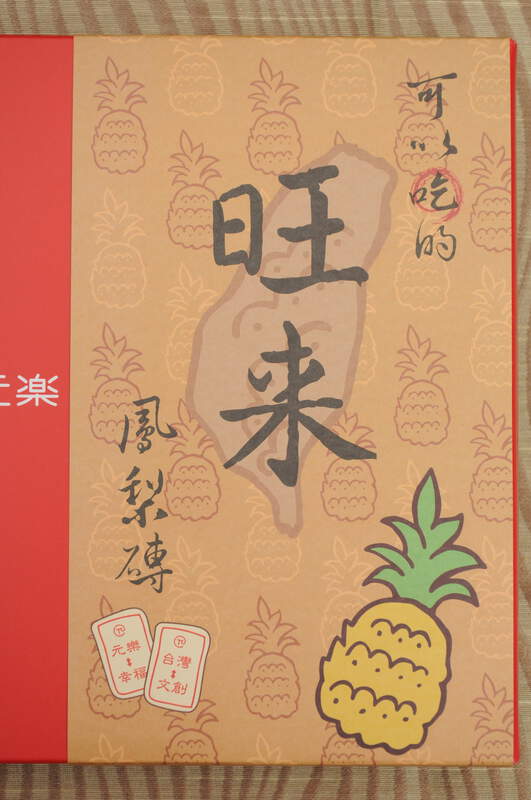 可以吃的
旺来
鳳梨磚
元樂
幸福
台灣
文創
楽